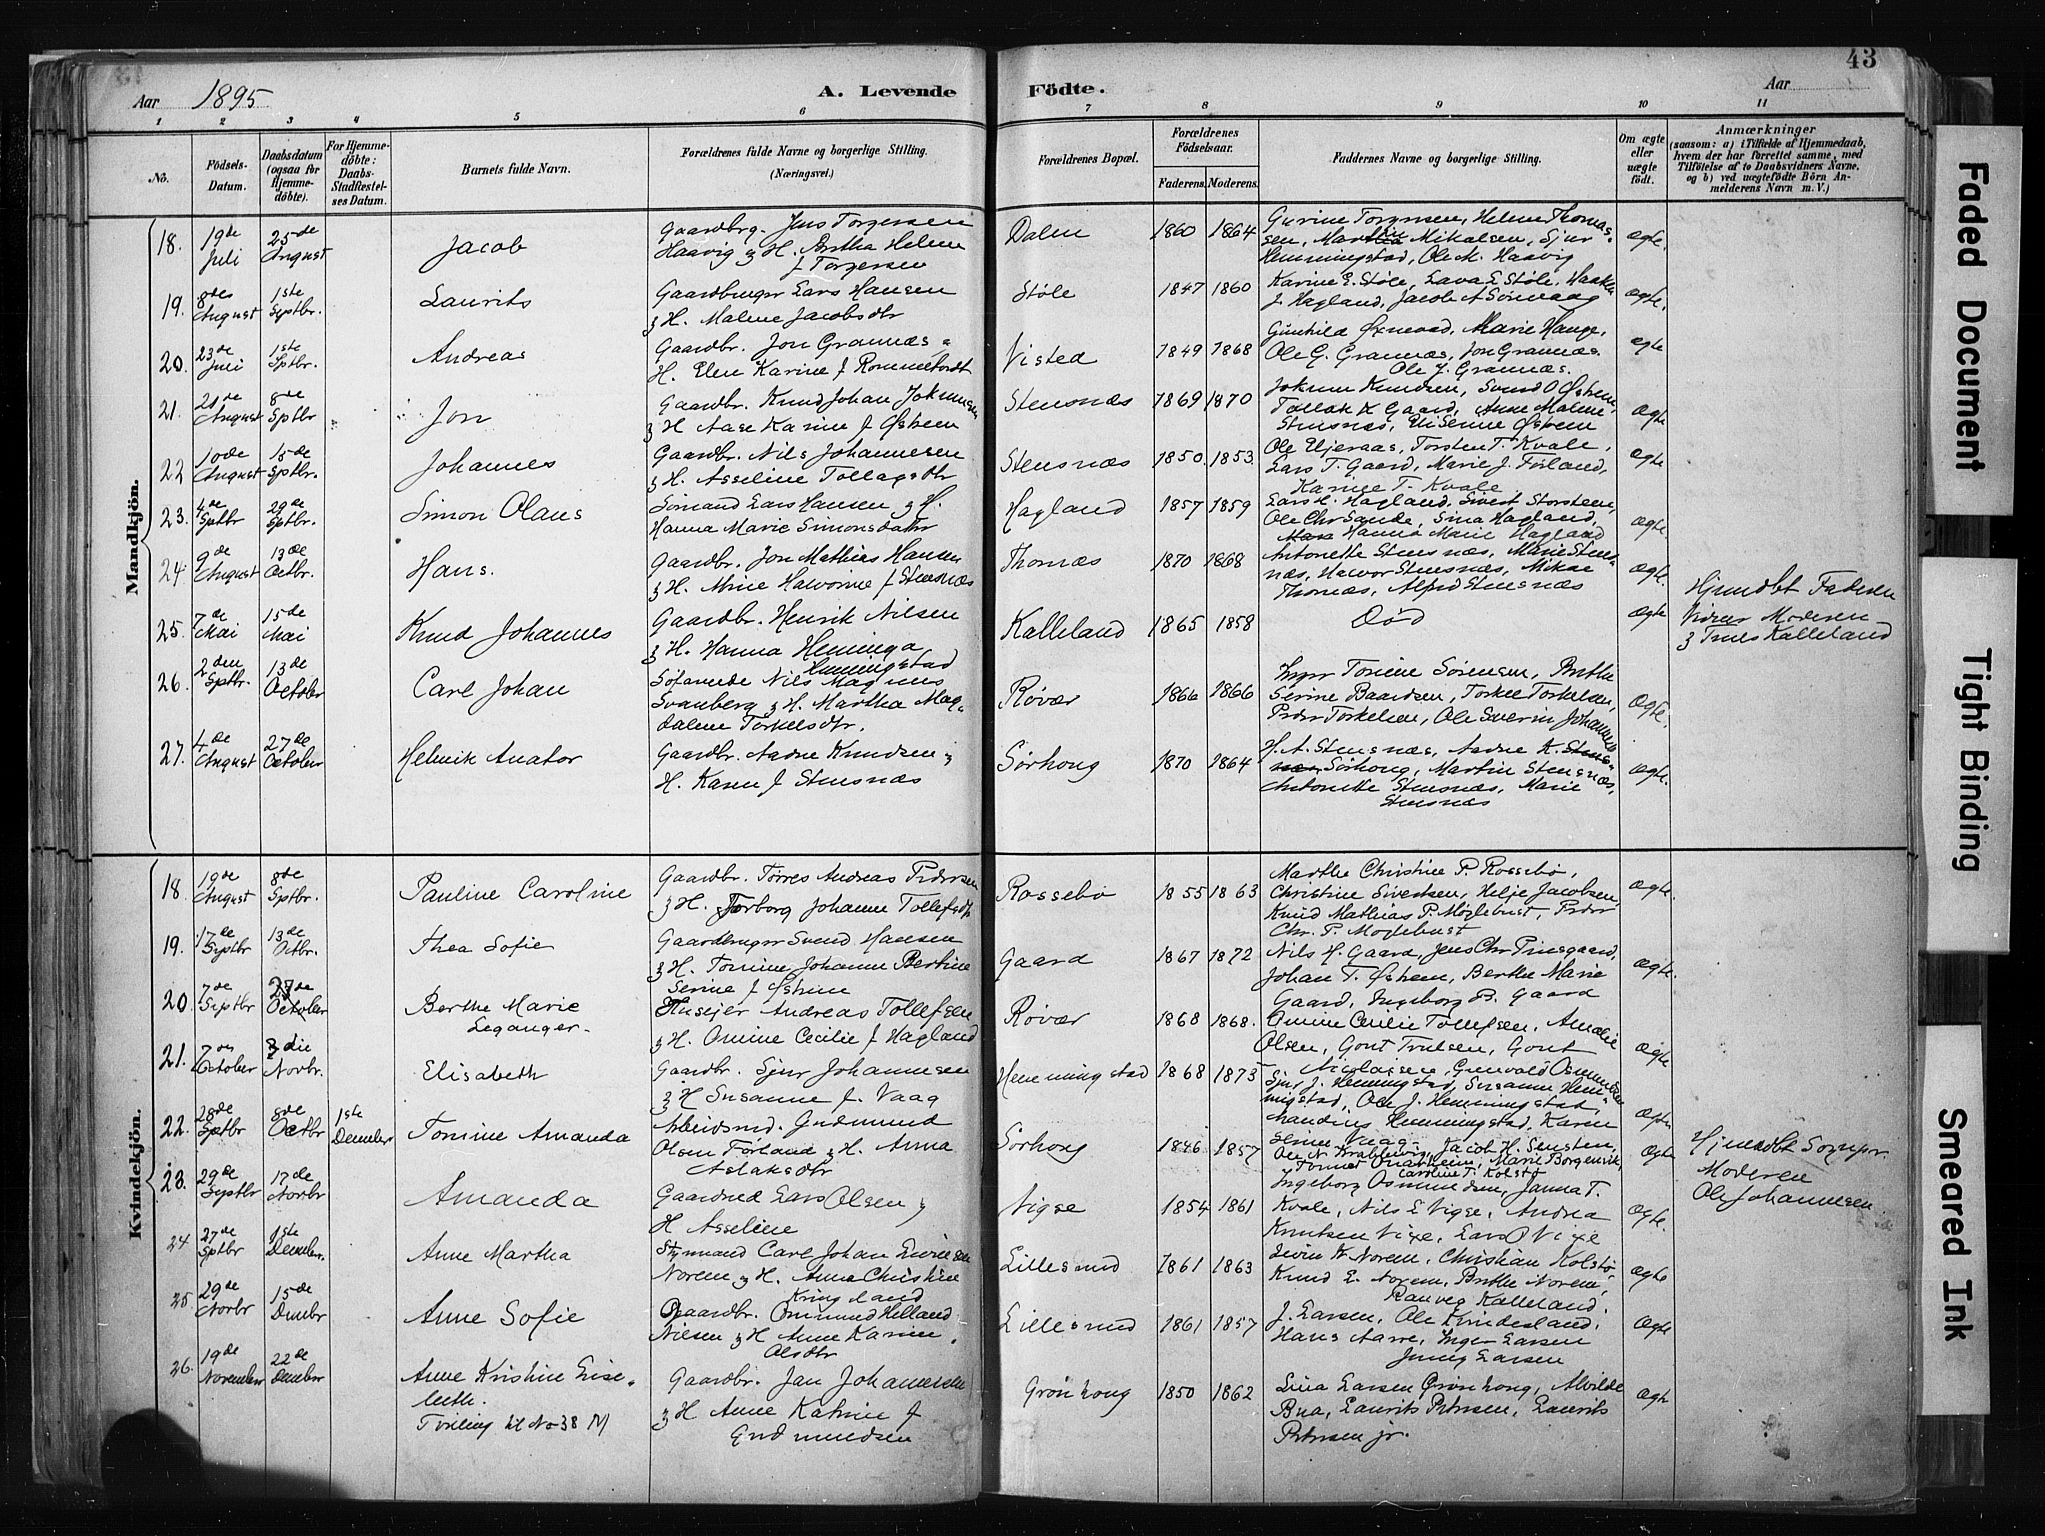 43
Aar 1895
A. Levende Födte.
Aar
1 2 3 4 5 6 7 8 9 10 11
No.
Födsels-Datum.
Daabsdatum (ogsaa for Hjemme-döbte).
For Hjemme-döbte: Daabs-Stadfæstel-ses Datum.
Barnets fulde Navn.
Forældrenes fulde Navne og borgerlige Stilling. (Næringsvei.)
Forældrenes Bopæl.
Forældrenes Födselsaar.
Faderens. Moderens.
Faddernes Navne og borgerlige Stilling.
Om ægte eller uægte födt.
Anmærkninger
(saasom: a) i Tilfælde af Hjemmedaab, hvem der har forrettet samme, med Tilföielse af to Daabsvidners Navne, og b) ved uægtefödte Börn An-melderens Navn m. V.)
Mandkjön.
18. 19de Juli 25de August Jacob
Gaardbrg. Jens Torgersen
Haavig & H. Brtha Helene
f Torgersen
Dalen 1860 1864
Gurine Torgersen, Helene Thomas-
sen, Mikalsen, Sjur
Hemmingstad, Ole M. Haavig
ægte.
19. 8de August 1ste Septbr. Laurits
Gaardbruger Lars Hansen
& H. Malene Jacobsdtr
Støle 1847 1860
Karine E. Støle, Lava E Støle, Haaken
J. Hagland, Jacob A Sørvaag
ægte.
20. 23de Juli 1ste Sptbr. Andreas
Gaardbr. Jon Grannæs &
H. Elen Karine f Rommetvedt
Visted 1849 1868
Gunhild Øxnevad, Marie Hauge,
Ole G. Grannæs, Jon Grannæs
Ole J. Grannæs.
ægte
21. 21de August 8de Sptbr Jon
Gaardbr. Knud Johan Jokumsen
& H Aase Karine f Østrem
Stensnæs 1869 1870
Jokum Knudsen, Svend O Østrem,
Tollak K Gaard, Anne Malene
Stensnæs, Eli Serine Østrem
ægte
22 10de August 15de Sptbr. Johannes
Gaardbr. Nils Johannesen
& H. Asseline Tollagsdtr
Stensnæs 1850. 1853.
Ole Eljeraas, Torsten T. Kvale,
Lars T. Gaard, Marie J. Førland,
Karine T. Kvale
ægte
23. 4de Sptbr 29de Sptbr. Simon Olaus
Sømand Lars Hansen & H.
Hanna Marie Simonsdatter
Hagland 1857 1859
Lars H. Hagland, Sivert Storsteen,
Ole Chr Sande, Sina Hagland,
Hanna Marie Hagland
ægte.
24 9de August 13de Octbr. Hans.
Gaardbr. Jon Mathias Hansen
& H. Mine Halvorine f Stensnæs
Thomæs 1870 1868
Antonette Stensnæs, Marie Stens-
næs, Halvor Stensnæs, Mikal
Thomæs, Alfred Stensnæs
ægte.
25. 7de Mai 15de Mai Knud Johannes
Gaardbr. Henrik Nilsen
& H. Hanna Henninga
Hemmingstad
Kalleland 1865 1858
Død
ægte
Hjemdbt Faderen
Vidner Moderen
& Truls Kalleland
26. 2den Sptbr. 13de October Carl Johan
Søfarende Nils Magnus
Svanberg & H. Martha Mag-
dalene Torkelsdtr.
Røvær 1866 1866
Inger Tomine Sørensen, Brithe
Serine Baardsen, Torkel Torkelsen,
Peder Torkelsen, Ole Severin Johannesen
ægte.
27. 4de August 27de October Helmik Anator
Gaardbr. Aadne Knudsen &
H. Karen f Stensnæs
Sørhoug 1870 1864
H. A. Stensnæs, Aadne K. Stens-
næs, Sørhoug, Martin Stensnæs,
Antonette Stensnæs, Marie
Stensnæs
ægte.
Kvindekjön.
18 19de August 8de Sptbr. Pauline Caroline
Gaardbr. Torres Andreas Pedersen
& H. Torborg Johanne Tollefsdtr
Rossebø 1855 1863
Marthe Christine P. Rossebø,
Christine Sivertsen, Helje Jacobsen,
Knud Mathias P. Møglebust, Peder
Chr. P. Moglebust
ægte.
19. 17de Septbr 13de Octbr. Thea Sofie
Gaardbruger Svend Hansen
& H. Tomine Johanne Bertine
Serine f Østrem
Gaard 1867 1872
Nils H. Gaard, Jens Chr Prinsgaard,
Johan T. Østrem, Berthe Marie
Gaard, Ingeborg B. Gaard
ægte.
20. 7de Septbr 27de October Berthe Marie
Leganger-
Husejer Andreas Tollefsen
& H. Omine Cecilie f Hagland
Røvær 1868 1868.
Omine Cecilie Tollefsen, Amalie
Olsen, Gout Trulsen, Gout
Nicolassen, Osmundsen
ægte
21. 7de October 3die Novbr. Elisabeth
Gaardbr. Sjur Johannesen
& H Susanne f. Vaag
Hemmingstad 1868 1873
Sjur J. Hemmingstad, Susanne Hem-
mingstad, Ole J. Hemmingstad,
Hemmingstad, Karen
Serine Vaag
ægte
22. 28de Septbr 8de Octbr 1ste Decmber Tomine Amanda
Arbeidsmd. Gudmund
Olsen Førland & H. Anna
Aslaksdtr
Sørhoug 1846 1857
Ole N. Krabbevig, Jacob H. Sensten,
Marie Borgenvik,
Caroline T. Kolstø
ægte
Hjemdbt Sognpr.
Moderen
Ole Johannesen
23. 29de Septbr 17de Novbr Amanda
Gaardmd Lars Olsen &
H Asseline
Vigse 1854 1861
Ingeborg Osmundsen, Janna T.
Kvale, Nils E Vigse, Andrea
Knutsen Vixe, Lars O Vixe
ægte.
24 27de Sptbr 1ste Decmber. Anne Martha
Styrmand Carl Johan
Noreem & H. Anna Christine
Kringeland
Lillesund 1861 1863
K Norem, Christian Kolstø,
Knud E. Norem, Brithe Norem,
Ranveg Kalleland.
ægte
25. 29de Novbr 15de Decmbr Anne Sofie
Gaardbr. Ommund Helland
Nilsen & H Anne Karine
Olsdtr
Lillesund 1861 1857
J. Larsen, Ole Kindesland,
Hans Aarre, Inger Larsen
Jenny Larsen
ægte
26. 19de November 22de Decmber Anne Kristine Lise-
beth.
Tvilling til No 38 M
Gaardbr. Jan Johannesen
& H Anne Katrine f
Gudmundsen
Grønhoug 1850 1862
Lina Larsen Grønhoug, Alvilde
Bua, Laurits Petersen, Laurits
Petersen jr.
ægte
Faded Document
Tight Binding
Smeared Ink